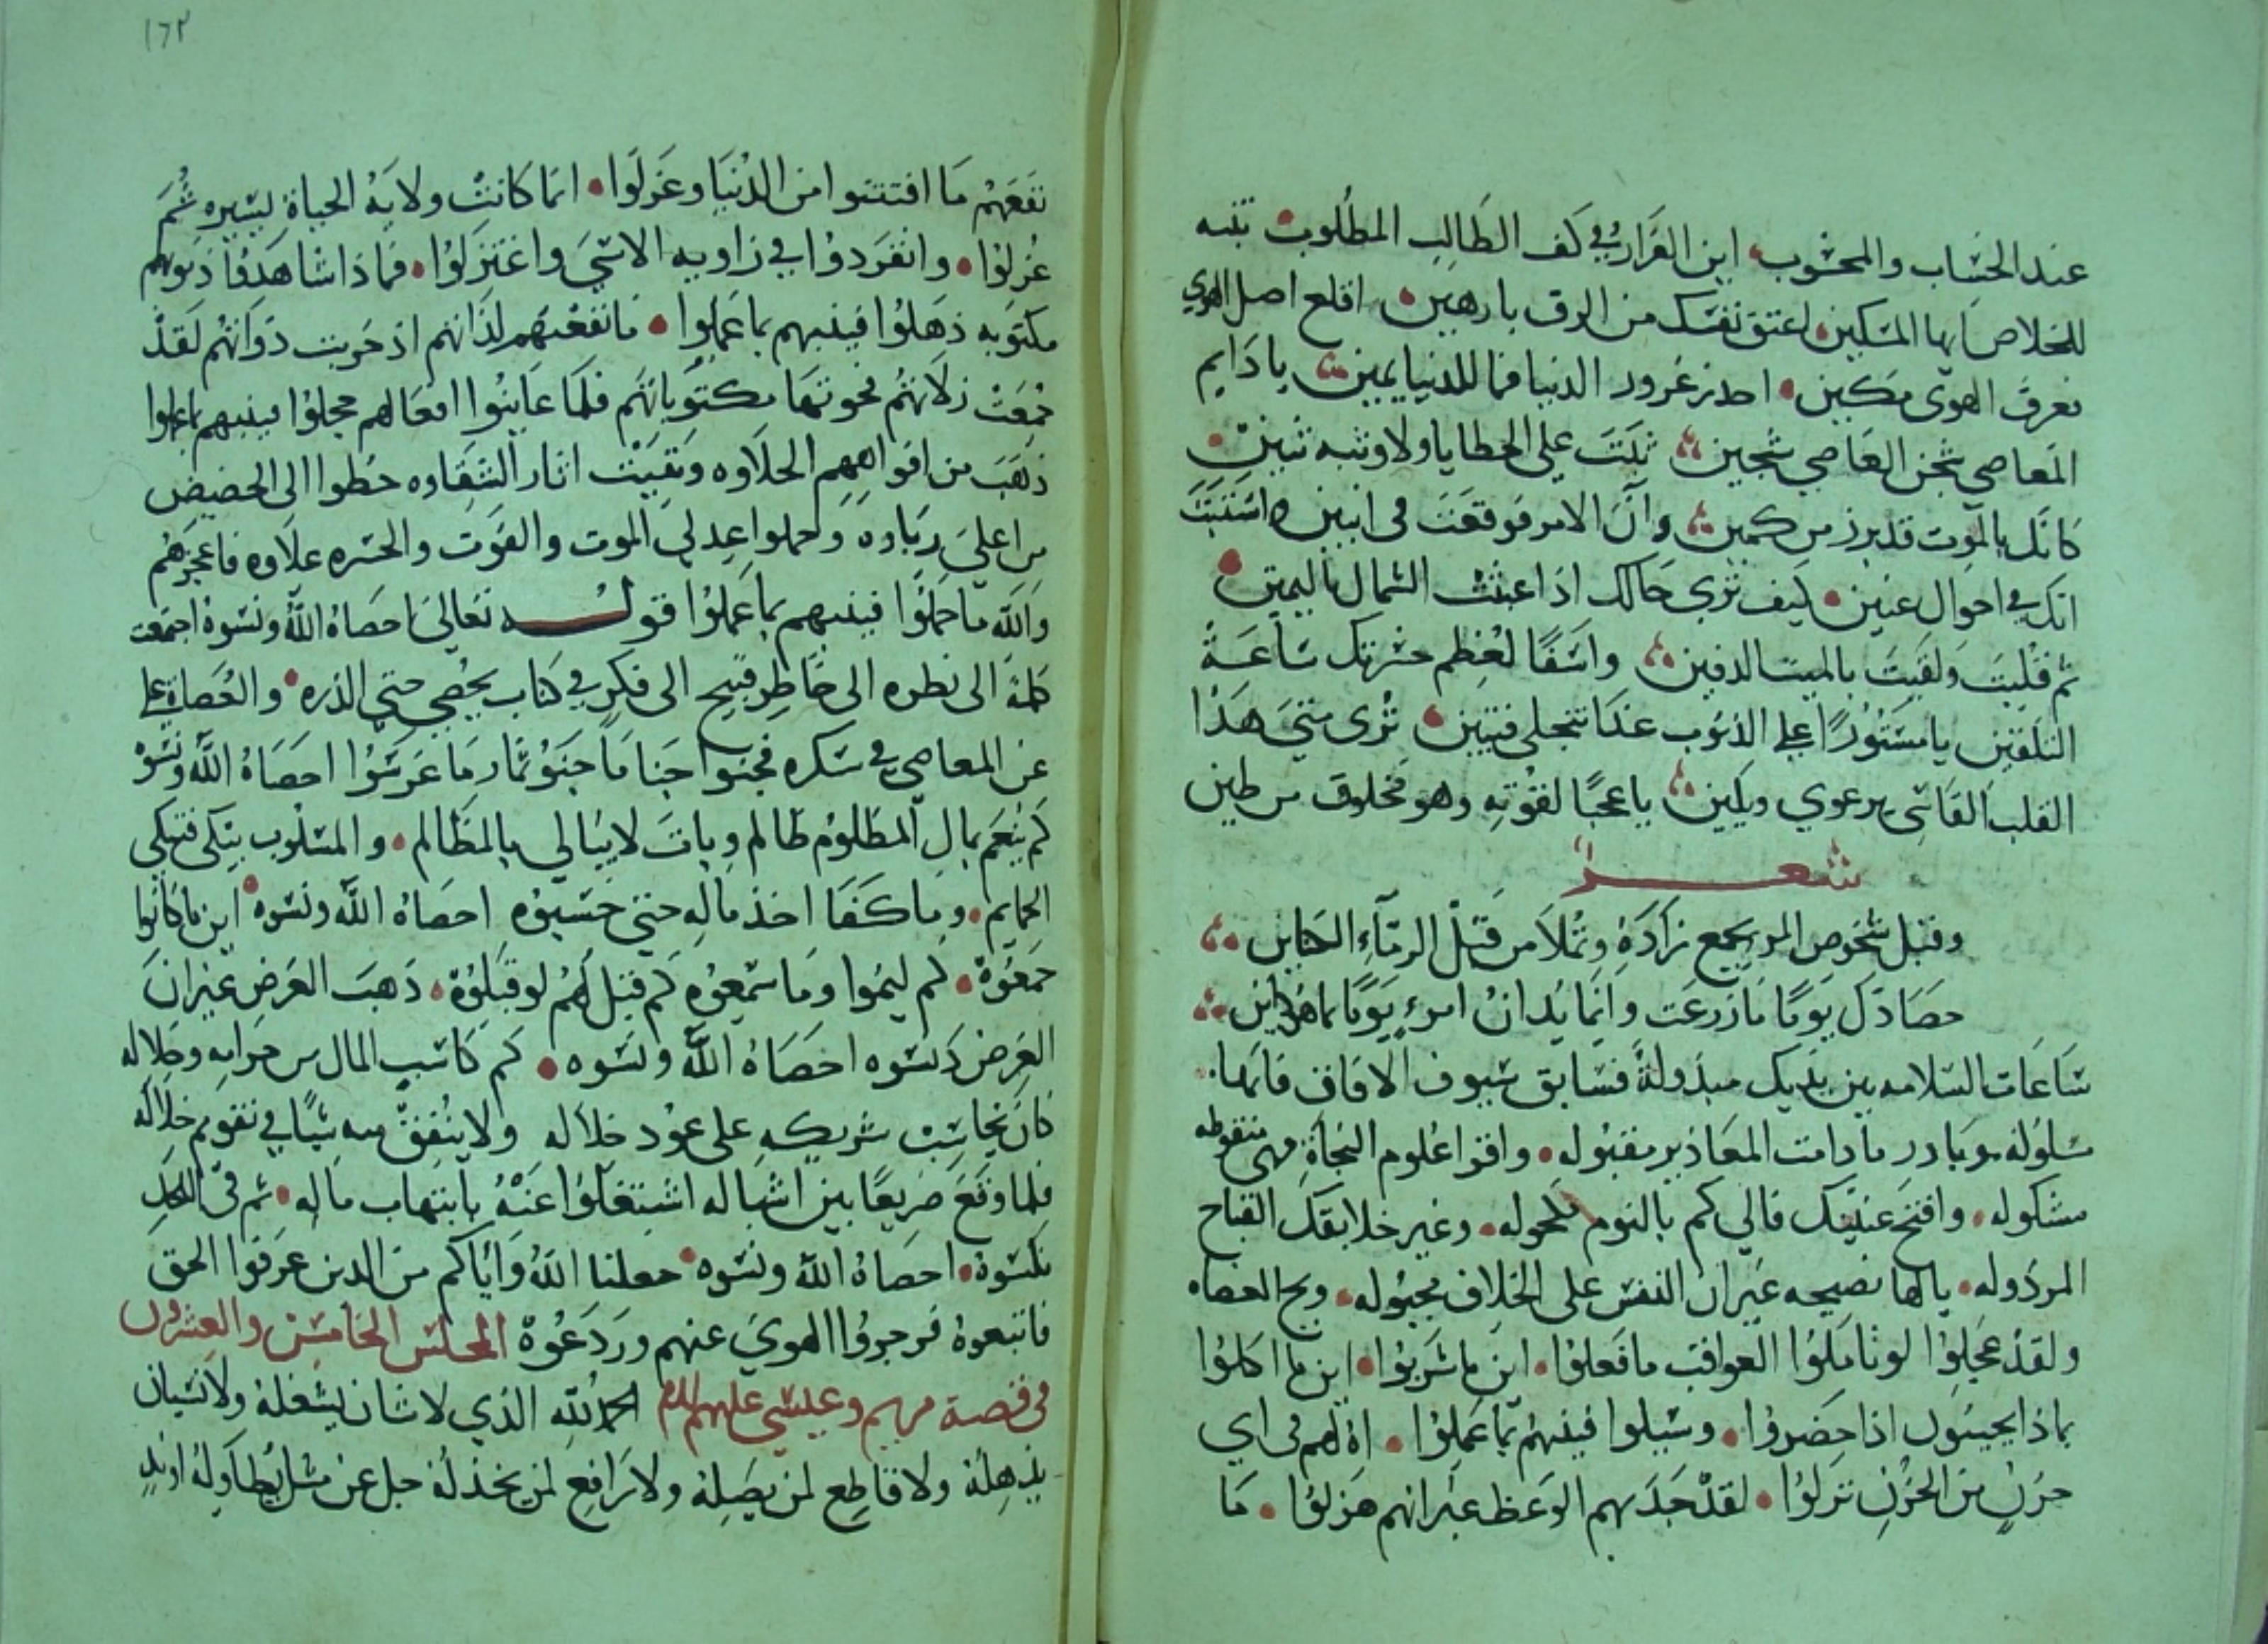 عند الحساب والمحسوب اين الفرار في كف الطالب المطلوب تنبه
للخلاص ايها المسكين اعتق نفسك من الرق يا رهين اقلع اصل الهوى
فعرق الهوى مكين احذر غرور الدنيا فما للدنيا يمين يا دايم
المعاصي سجن العاصي سجين تبت على الخطايا ولا وثبه تبين
كانك بالموت قد برز من كمين وان الامر فوقعت في انين واستبنت
انك في احوال عنين كيف ترى حالك اذا عبثت الشمال باليمين
ثم قلبت ولقيت بالميت الدفين وا اسفا لعظم حسرتك ساعة
التلقين يا مستورا على الذنوب غدا تنجلي فتبين ترى متى هذا
القلب القاسي يرعوي ويلين يا عجبا لقوته وهو مخلوق من طين
شعر
وقبل شخوص المر يجمع زاده وتملا من قبل الرماء الكناين
حصادك يوما ما زرعت وانما يدان امرء يوما بما هو داين
ساعات السلامه بين يديك مبذولة فسابق سيوف الافات فانها
مسلوله وبادر ما دامت المعاذير مقبوله واقرا علوم النجاة فهي منقوطه
مشكوله وافتح عينيك فالى كم بالنوم مكحوله وغير خلايقك القباح
المرذوله يا لها نصيحه غير ان النفس على الخلاف مجبوله ويح العصاه
ولقد عجلوا لو تاملوا العواقب ما فعلوا اين ما شربوا اين ما اكلوا
بماذا يجيبون اذا حضروا وسيلوا فينبهم بما عملوا اه لهم في اي
حزن من الحزن نزلوا لقد جد بهم الوعظ غير انهم هزلوا ما
١٦٢
نفعهم ما افتتنوا من الدنيا وعزلوا انما كانت ولاية الحياة يسيره ثم
عزلوا وانفردوا في زاوية الاسى واعتزلوا فماذا شاهدوا ذنوبهم
مكتوبه ذهلوا فينبهم بما عملوا ما نفعتهم لذاتهم اذ خربت ذواتهم لقد
جمعت زلاتهم فحوتها مكتوباتهم فلما عاينوا افعالهم خجلوا فينبهم بما عملوا
ذهب من افواههم الحلاوه وبقيت اثار الشقاوه حطوا الى الحضيض
من اعلى رباوه وحملوا عدلي الموت والفوت والحسره علاوه فاعجزهم
والله ما حملوا فينبهم بما عملوا قوله تعالى احصاه الله ونسوه اجمعت
كلمة الى نظره الى خاطر قبيح الى فكر في كتاب يحصي حتى الذره والعصاة
عن المعاصي في سكره فجنوا جنا ما جنو ثمار ما غرسوا احصاه الله ونسوه
كم ينعم بمال المظلوم ظالم وبات لا يبالي بالمظالم والمسلوب يبكي فتبكي
الحمايم وما كفا اخذ ماله حتى حبسوه احصاه الله ونسوه اين ما كانوا
جمعوه كم ليموا وما سمعوه كم قيل لهم لو قبلوه ذهب العرض غير ان
العرض دنسوه احصاه الله ونسوه كم كاسب المال من حرامه وحلاله
كان يحاسب شريكه على عود خلاله ولا ينفق منه شيا في تقويم خلاله
فلما وقع صريعا بين اشباله اشتغلوا عنه بانتهاب ماله ثم في اللحد
نكسوه احصاه الله ونسوه جعلنا الله واياكم من الذين عرفوا الحق
فاتبعوه فزجروا الهوى عنهم وردعوه المجلس الخامس والعشرون
في قصة مريم وعيسى عليهم السلام الحمد لله الذي لا شان يشغله ولا نسيان
يذهله ولا قاطع لمن يصله ولا رافع لمن يخذله جل عن مثل يطاوله او ند